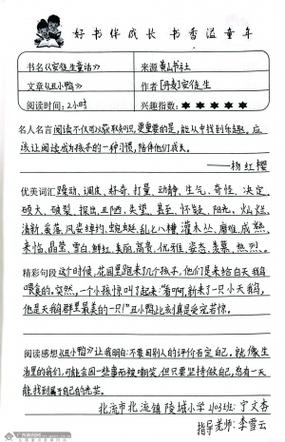 好书伴成长 书香溢童年
书名《安徒生童话》 来源 黄山书社
文章《丑小鸭》 作者 [丹麦]安徒生
阅读时间:2小时 兴趣指数:★★★★★
名人名言 阅读不仅可以获取知识,更重要的是,能从中找到乐趣。应
该让阅读成为孩子的一种习惯,陪伴他们成长。
——杨红樱
优美词汇 跳动、调皮、好奇、打量、动静、生气、奇怪、决定、
硕大、破裂、探出、丑陋、失望、甚至、怀疑、阳光、灿烂、
清新、哀落、风姿绰约、蹒跚、乱七八糟、灌木丛、磨难、成熟、
来临、晶莹、雪白、鲜红、美丽、高贵、优雅、姿态、羡慕、热烈。
精彩句段 这个时候,花园里跑来几个孩子,他们是来给白天鹅
喂食的。突然,一个小孩惊叫了起来:“看呵,新来了一只小天鹅,
他是天鹅群里最美的一只!”丑小鸭此刻真是受宠若惊。
阅读感想《丑小鸭》让我明白:不要因别人的评价否定自己,就像生
活里的我们,可能会因一些事而被嘲笑,但只要坚持做自己,总有一天
能找到属于自己的光芒。
北流市北流镇陵城小学403班:宁文杏
指导老师:李雪云